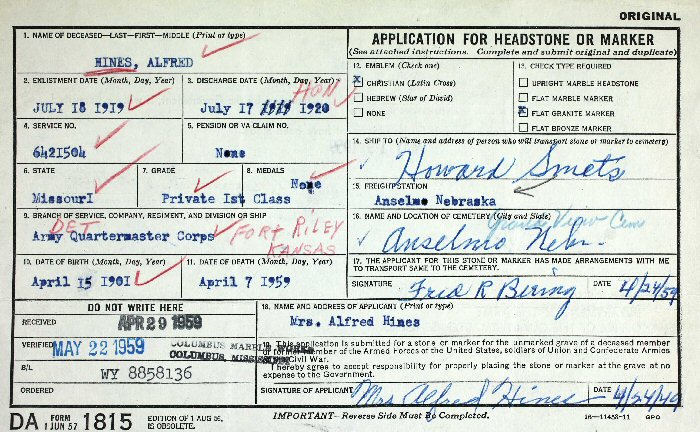 ORIGINAL
1. NAME OF DECEASED—LAST—FIRST—MIDDLE (Print or type)
HINES, ALFRED
2. ENLISTMENT DATE (Month, Day, Year)
JULY 18 1919
3. DISCHARGE DATE (Month, Day, Year)
HON
July 17 1919 1920
4. SERVICE NO.
6421504
5. PENSION OR VA CLAIM NO.
None
6. STATE
Missouri
7. GRADE
Private Ist Class
8. MEDALS
None
9. BRANCH OF SERVICE, COMPANY, REGIMENT, AND DIVISION OR SHIP
DET
Army Quartermaster Corps
FORT RILEY
KANSAS
10. DATE OF BIRTH (Month, Day, Year)
April 15 1901
11. DATE OF DEATH (Month, Day, Year)
April 7 1959
APPLICATION FOR HEADSTONE OR MARKER
(See attached instructions. Complete and submit original and duplicate)
12. EMBLEM (Check one)
X CHRISTIAN (Latin Cross)
HEBREW (Star of David)
NONE
13. CHECK TYPE REQUIRED
UPRIGHT MARBLE HEADSTONE
FLAT MARBLE MARKER
X FLAT GRANITE MARKER
FLAT BRONZE MARKER
14. SHIP TO (Name and address of person who will transport stone or marker to cemetery)
Howard Smets
15. FREIGHT STATION
Anselmo Nebraska
16. NAME AND LOCATION OF CEMETERY (City and State)
Grand View Cem
Anselmo Nebr.
17. THE APPLICANT FOR THIS STONE OR MARKER HAS MADE ARRANGEMENTS WITH ME
TO TRANSPORT SAME TO THE CEMETERY.
SIGNATURE Fred R Bering DATE 4/24/59
DO NOT WRITE HERE
RECEIVED APR 29 1959
VERIFIED MAY 22 1959
COLUMBUS MARBLE WORKS
COLUMBUS, MISSISSIPPI
B/L WY 8858136
ORDERED
18. NAME AND ADDRESS OF APPLICANT (Print or type)
Mrs. Alfred Hines
19. This application is submitted for a stone or marker for the unmarked grave of a deceased member
or former member of the Armed Forces of the United States, soldiers of Union and Confederate Armies
Civil War.
I hereby agree to accept responsibility for properly placing the stone or marker at the grave at no
expense to the Government.
SIGNATURE OF APPLICANT Mrs Alfred Hines DATE 4/24/49
DA FORM 1 JUN 57 1815
EDITION OF 1 AUG 56, IS OBSOLETE.
IMPORTANT—Reverse Side Must Be Completed.
16—11453-11 GPO